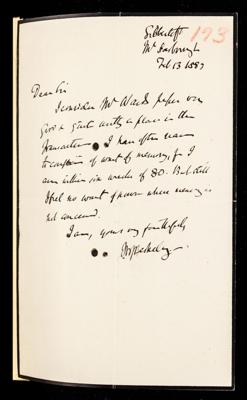 173
Gilbertcroft
Nr Scarborough
Feb 13 1889
Dear Sir
I consider Mr Ward's paper very
good & quite worthy a place in the
Transactions I have often reason
to complain of want of memory, for I
am within six weeks of 80. But still
I feel no want of power when memory is
not concerned.
I am, yours very faithfully